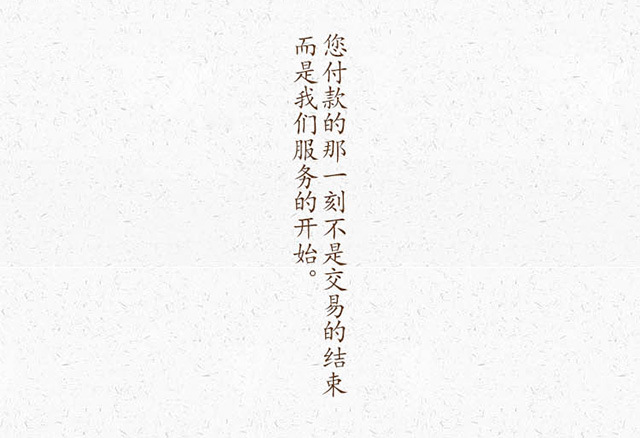 您付款的那一刻不是交易的结束
而是我们服务的开始。